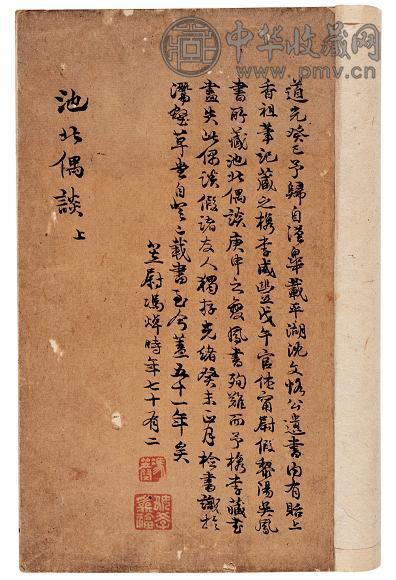 中华收藏网
www.pmv.cn
道光癸巳予歸自漢皋載平湖沈文恪公遺書內有貽上
香祖筆記藏之檇李咸豐戊午官佐甯尉假黎陽吳鳳
書所藏池北偶談庚申之變鳳書殉難而予檇李藏書
盡失此偶談假諸友人獨存光緒癸未正月檢書識於
草堂自癸巳載書至今蓋五十一年矣
笠尉馮焯時年七十有二
池北偶談 上